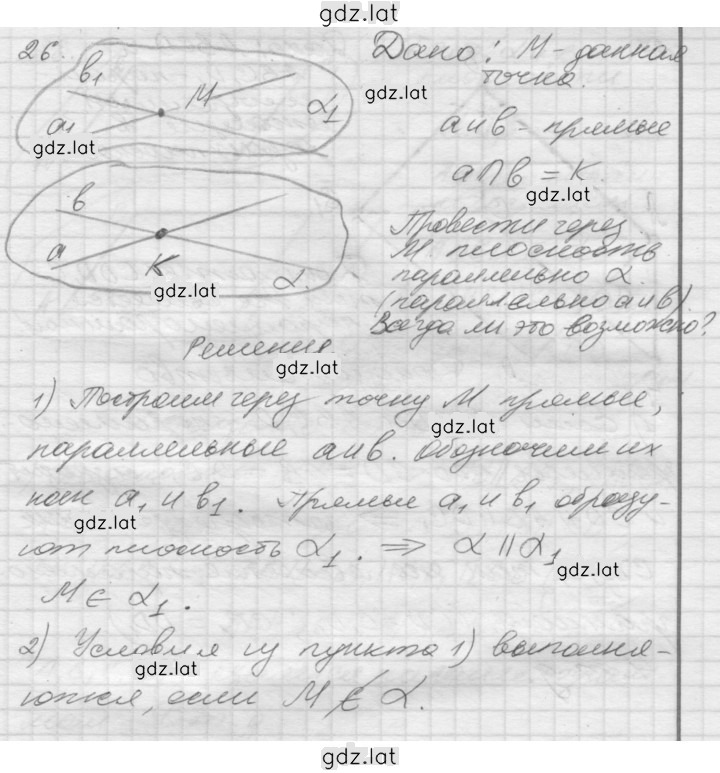 gdz.lat
26.
b₁
M
a₁
α₁
gdz.lat
в
a
K
α
gdz.lat
Дано: M - данная
точка.
gdz.lat
a и в - прямые
a∩в = K.
gdz.lat
Провести через
M плоскость
параллельно α.
(параллельно a и в)
Всегда ли это возможно?
Решение.
gdz.lat
1) Построим через точку M прямые,
gdz.lat
параллельные a и в. Обозначим их
как a₁ и в₁. Прямые a₁ и в₁ образу-
gdz.lat
ют плоскость α₁. ⇒ α || α₁
gdz.lat
M ∈ α₁.
2) Условия из пункта 1) выполня-
gdz.lat
ются, если M ∉ α.
gdz.lat